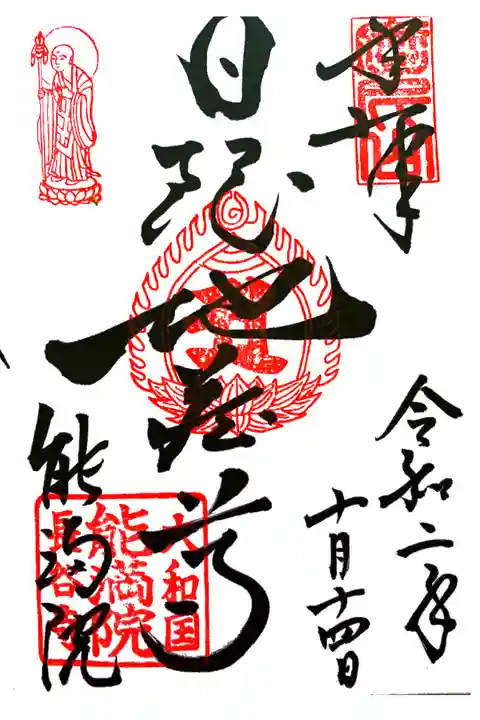 奉拝
令和二年
十月十四日
日限地蔵尊
能満院
大和国
能満院
長谷寺